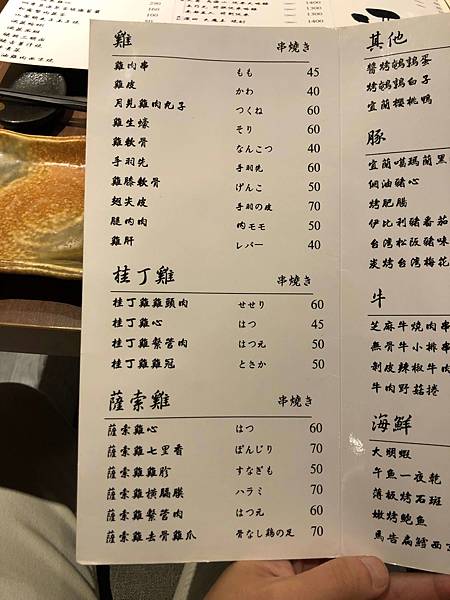 雞 串燒き
雞肉串 もも 45
雞皮 かわ 40
月見雞肉丸子 つくね 60
雞生蠔 そり 60
雞軟骨 なんこつ 40
手羽先 手羽先 60
雞膝軟骨 げんこ 50
翅尖皮 手羽の皮 70
腿內肉 内モモ 50
雞肝 レバー 40
桂丁雞 串燒き
桂丁雞雞頸肉 せせり 60
桂丁雞心 はつ 45
桂丁雞繫管肉 はつえ 50
桂丁雞雞冠 とさか 50
薩索雞 串燒き
薩索雞心 はつ 60
薩索雞七里香 ぼんじり 70
薩索雞雞胗 すなぎも 50
薩索雞橫膈膜 ハラミ 70
薩索雞繫管肉 はつえ 60
薩索雞去骨雞爪 骨なし鶏の足 70
其他
醬烤鵪鶉蛋
烤鵪鶉白子
宜蘭櫻桃鴨
豚
宜蘭噶瑪蘭黑
網油豬心
烤肥腸
伊比利豬番茄
台湾松阪豬味
炭烤台湾梅花
牛
芝麻牛燒肉串
無骨牛小排串
剝皮辣椒牛肉
牛肉野菇捲
海鮮
大明蝦
午魚一夜乾
薄板烤石斑
嫩烤鮑魚
馬告扁鱈西京